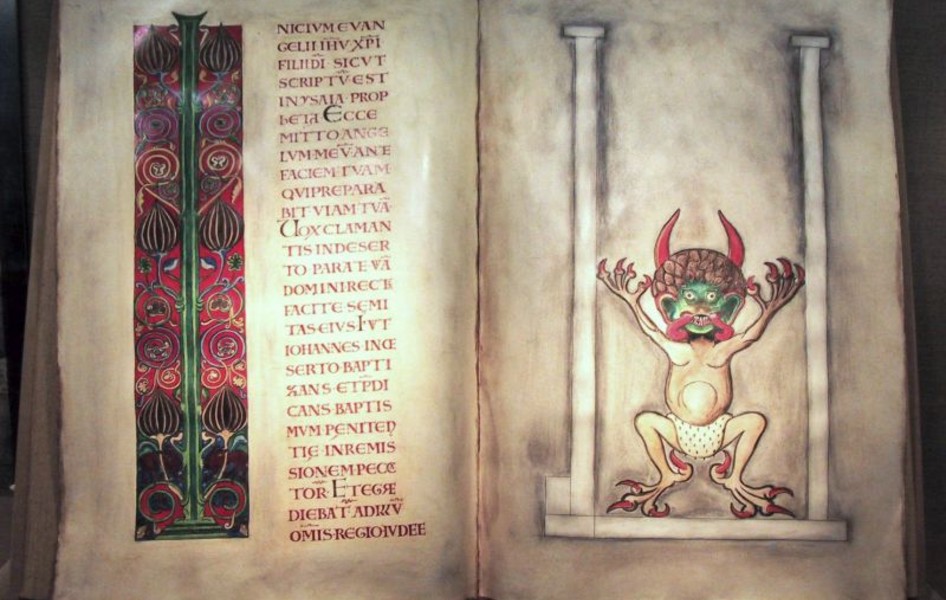 NICIVM EVAN
GELII IHV XPI
FILII DI SICVT
SCRIPTV EST
IN YSAIA PROP
hETA ECCE
MITTO ANGE
LVM MEV ANTE
FACIEM TVAM
QVI PREPARA
BIT VIAM TVA
VOX CLAMAN
TIS IN DESER
TO PARATE VA
DOMINI RECTA
FACITE SEMI
TAS EIVS FVT
IOHANNES IN
SERTO BAPTI
ZANS ET PDI
CANS BAPTIS
MVM PENITEN
TIE IN REMIS
SIONEM PECC
TOR ET EGRE
DIEBAT AD
OMIS REGIO IVDEE